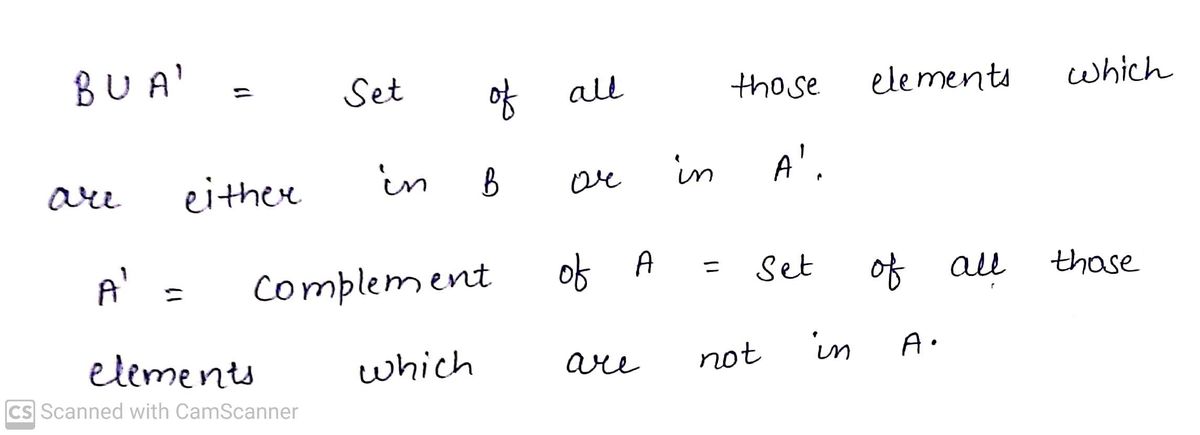 B U A' = Set of all those elements which
are either in B or in A'.
A' = Complement of A = Set of all those
elements which are not in A.
CS Scanned with CamScanner